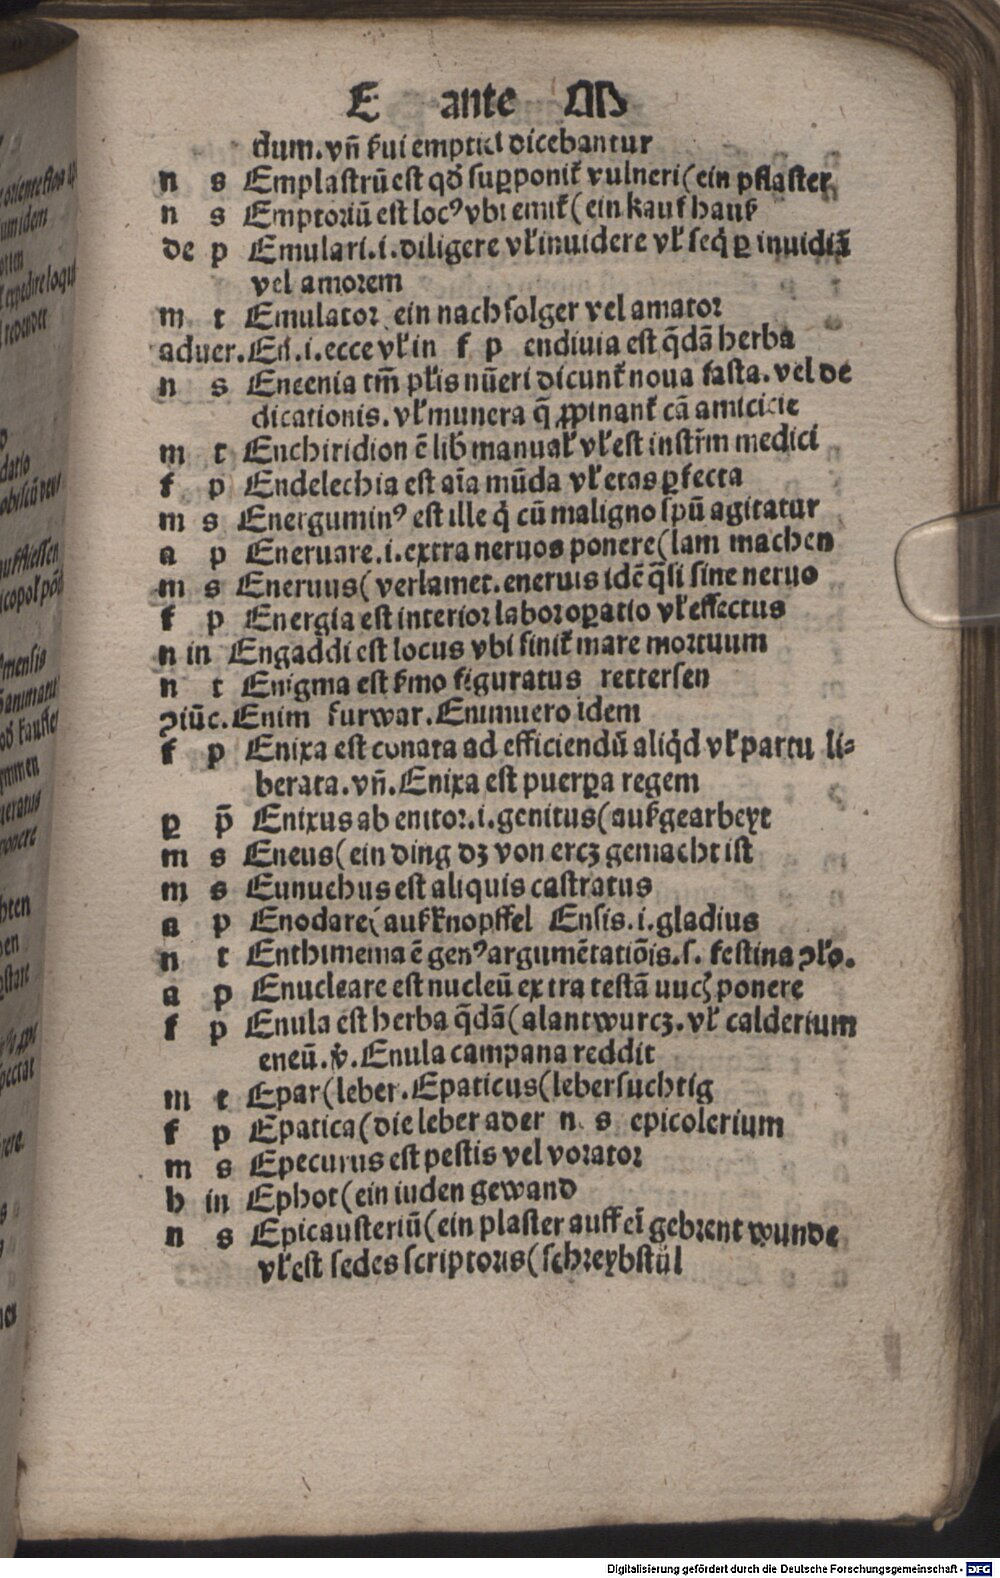 E ante M
dum. vn̄ ẜui empticí dicebantur
n s Emplastrū est qd̕ suꝑponit᷑ vulneri (ein pflaster
n s Emptoriū est locꝰ vbi emit᷑ (ein kauf hauß
de p Emulari. i. diligere vl̕ inuidere vl̕ seq̇ ꝑ inuidiā
vel amorem
m t Emulator ein nachfolger vel amator
aduer. En̄. i. ecce vl̕ in f p endiuia est q̄dā herba
n s Encenia tm̄ pl̕is nūeri dicunt᷑ noua fasta. vel de
dicationis. vl̕ munera q̄ ꝓpinant᷑ cā amicicie
m t Enchiridion ē lib̕ manual̕ vl̕ est instr̄m medici
f p Endelechia est aīa mūda vl̕ etas ꝑfecta
m s Energuminꝰ est ille q̇ cū maligno spū agitatur
a p Eneruare. i. extra neruos ponere (lam machen
m s Eneruus (verlamet. eneruis idē q̄si sine neruo
f p Energia est interior labor oꝑatio vl̕ effectus
n in Engaddi est locus vbi finit᷑ mare mortuum
n t Enigma est ẜmo figuratus rettersen
ꝯiūc. Enim furwar. Enimuero idem
f p Enixa est conata ad efficiendū aliq̇d vl̕ partu li⸗
berata. vn̄. Enixa est puerꝑa regem
ꝑ p̄ Enixus ab enitor. i. genitus (außgearbeyt
m s Eneus (ein ding dz von ercz gemacht ist
m s Eunuchus est aliquis castratus
a p Enodare (aufknopffel Ensis. i. gladius
n t Enthimema ē genꝰ argumētatiōis. s. festina ꝯl̕o.
a p Enucleare est nucleū extra testā nucꝭ ponere
f p Enula est herba q̄dā (alantwurcz. vl̕ calderium
eneū. v̕. Enula campana reddit
m t Epar (leber. Epaticus (lebersuchtig
f p Epatica (die leber ader n s epicolerium
m s Epecurus est pestis vel vorator
h in Ephot (ein iuden gewand
n s Epicausteriū (ein plaster auff eī gebrent wunde
vl̕ est sedes scriptoris (schreybstůl
Digitalisierung gefördert durch die Deutsche Forschungsgemeinschaft - DFG